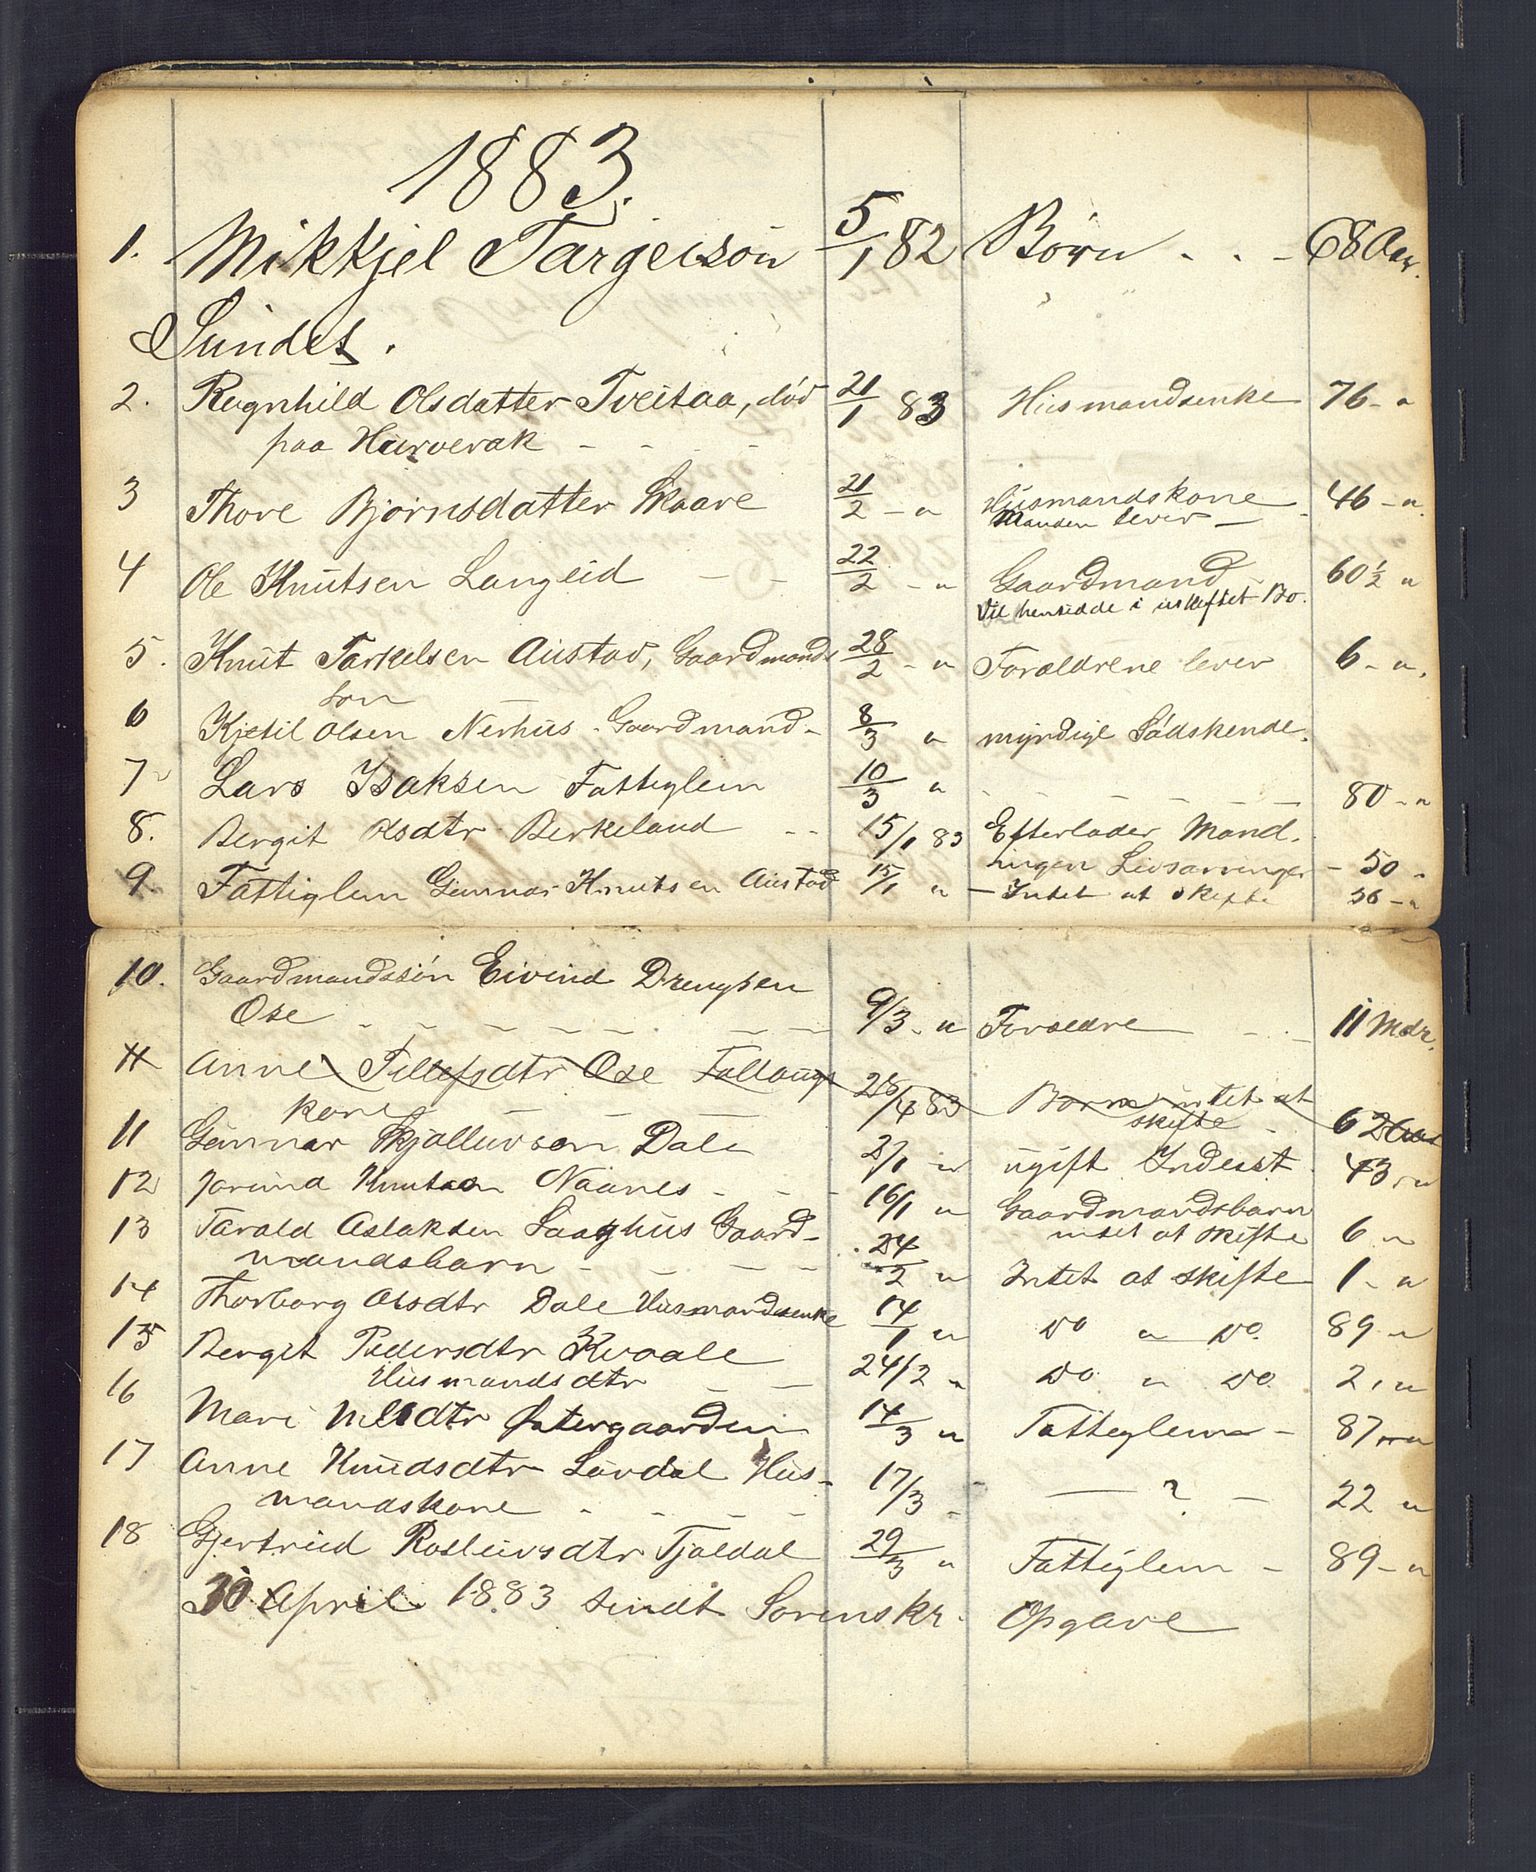 1883.
1. Mikkjel Targeisøn 5/1 82 Børn . . - 68 Aar.
Sundet.
2. Ragnhild Olsdatter Tveitaa, død 21/1 83 Husmandsenke 76 - "
paa Hurverak - - - -
3 Thore Bjørnsdatter Skaare 21/2 - " Husmandskone 46 - "
Manden lever -
4 Ole Knutsen Langeid - - 22/2 - " Gaardmand 60 1/2 "
Vil hensidde i uskiftet Bo.
5. Knut Tarkelsen Austad, Gaardmands 28/2 - " Forældrene lever 6 - "
søn
6 Kjetil Olsen Nerhus - Gaardmand - 8/3 " myndige Sødskende.
7 Lars Isaksen Fattiglem 10/3 " - - - - - 80 - "
8. Bergit Olsdtr Berkeland - - 15/1 83 Efterlader Mand.
ingen Livsarvinger - 50 "
9. Fattiglem Gunnar Knutsen Austad 15/1 " - Intet at skifte 56 - "
10. Gaardmandssøn Eivind Drengsen
Ose - - - - - 9/3 - " Forældre - - 11 Mdr.
11 Anne Tellefsdtr Ose Fallaugs 28/4 83 Børn intet at
kone skifte 62 Aar
11 Gunnar Skjølluvson Dale 2/1 " ugift Inderst 43 "
12 Jorund Knutson Naanes - - - 16/1 " Gaardmandsbarn
intet at skifte 6 "
13 Tarald Aslaksen Laaghus Gaard- 24/2 " Intet at skifte 1 - "
mandsbarn - - - -
14 Thorborg Olsdtr Dale Husmandsenke 14/1 " do " do. 89 "
15 Bergit Pedersdtr Kvaale 24/2 " do " do 2 "
Husmandsdtr - -
16 Mari Nilsdtr Østergaarden 14/3 " Fattiglem - 87 "
17 Anne Knudsdtr Løvdal Hus- 17/3 - - ? - 22 "
mandskone - - - -
18 Gjertrud Rosluvsdtr Tjaldal 29/3 " Fattiglem - 89 - "
30 April 1883 sendt Sorenskr. Opgave